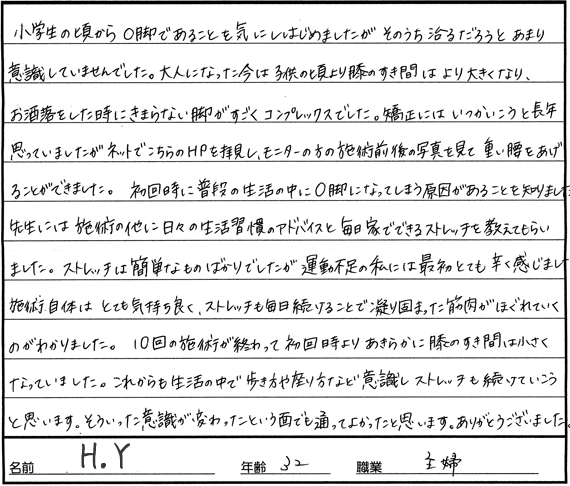 小学生の頃からO脚であることを気にしはじめましたがそのうち治るだろうとあまり
意識していませんでした。大人になった今は子供の頃より膝のすき間はより大きくなり、
お洒落をした時にきまらない脚がすごくコンプレックスでした。矯正にはいつかいこうと長年
思っていましたがネットでこちらのHPを拝見し、モニターの方の施術前後の写真を見て重い腰をあげ
ることができました。初回時に普段の生活の中にO脚になってしまう原因があることを知りました
先生には施術の他に日々の生活習慣のアドバイスと毎日家でできるストレッチを教えてもらい
ました。ストレッチは簡単なものばかりでしたが運動不足の私には最初とても辛く感じまし
施術自体はとても気持ち良く、ストレッチも毎日続けることで凝り固まった筋肉がほぐれていく
のがわかりました。10回の施術が終わって初回時よりあきらかに膝のすき間は小さく
なっていました。これからも生活の中で歩き方や座り方など意識しストレッチも続けていこう
と思います。そういった意識が変わったという面でも通ってよかったと思います。ありがとうございました。
名前 H.Y 年齢 32 職業 主婦